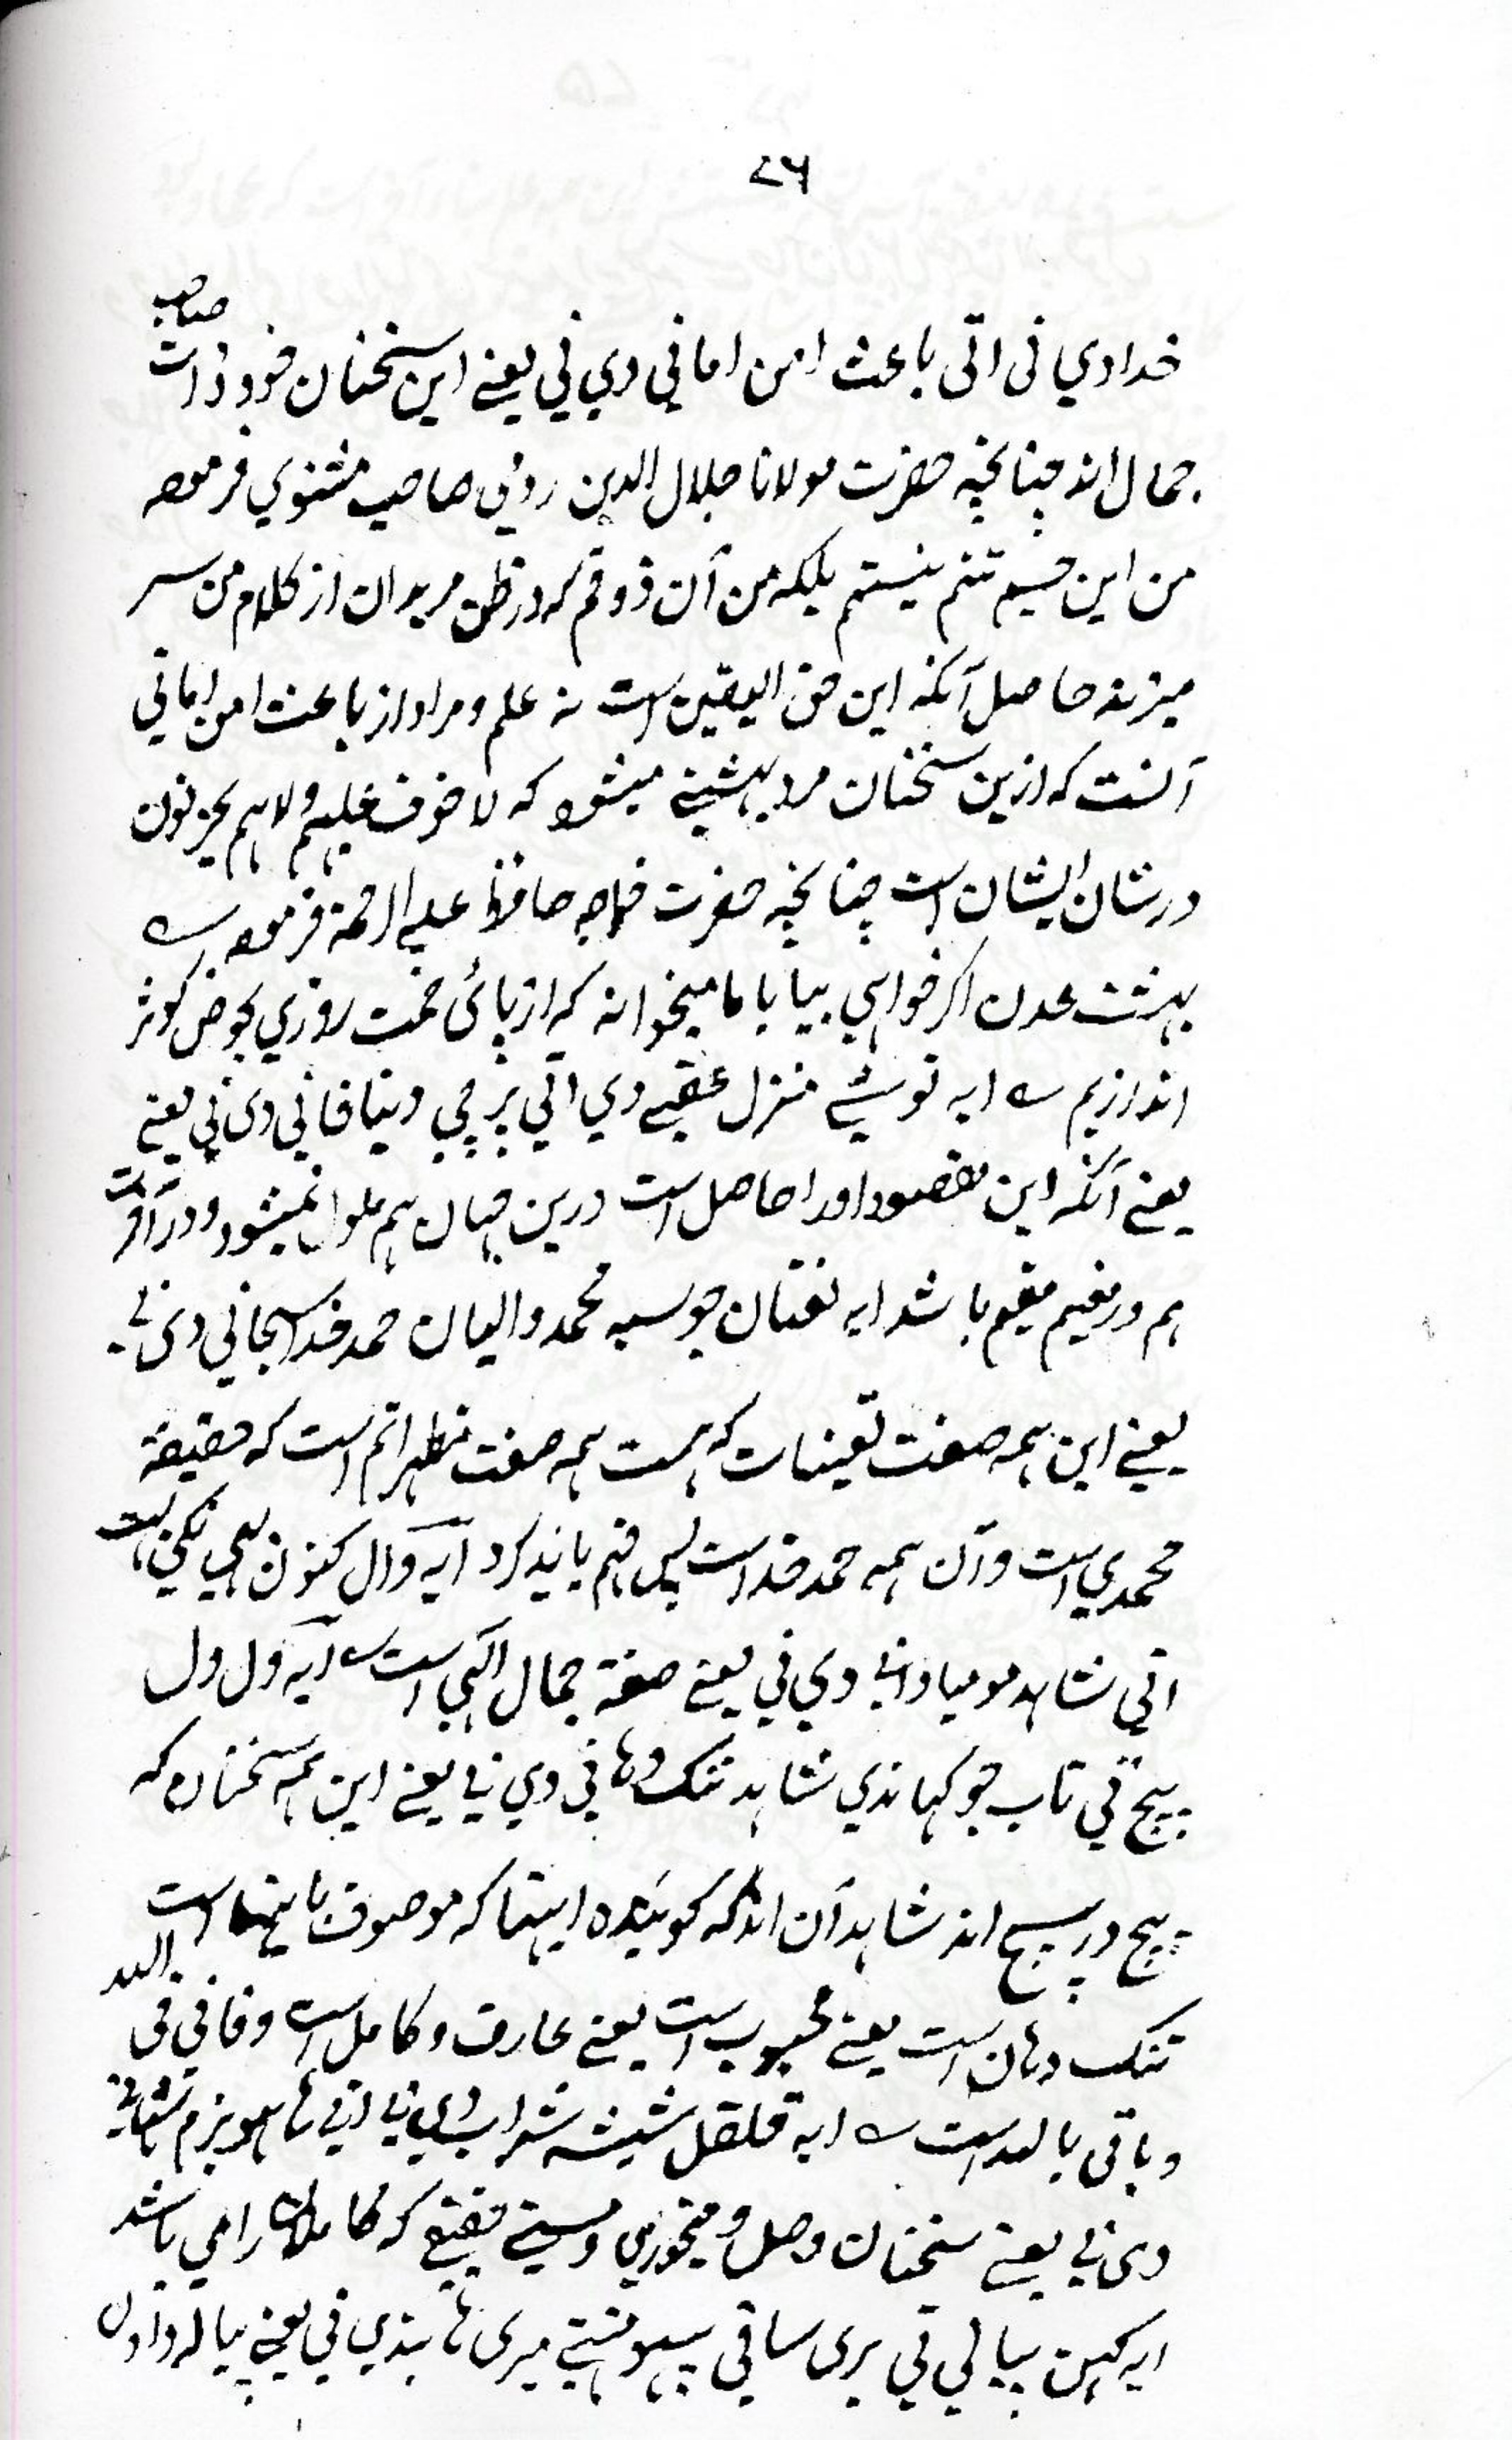 ۷۶
خدادي نی اتی باعث امن اماني دي ني یعنے این سخنان خود ذات صاحب
جمال اند چنانچه حضرت مولانا جلال الدین رومي صاحب مثنوي فرموده
من این جسیم تنم نیستم بلکه من آن ذوقم که در ظن مریدان از کلام من سر
میزند حاصل آنکه این حق الیقین است نه علم و مراد از باعث امن اماني
آنست که ازین سخنان مرد بهشتي میشود که لا خوف علیهم ولا هم یحزنون
در شان ایشان است چنانچه حضرت خواجه حافظ علیه الرحمة فرموده
بهشت عدن اگر خواهي بیا با ما میخوانه که از پائی خمت روزي بحوض کوثر
اندازیم ایه توشے منزل عقبے دي اتي پر چي دنیا فاني دی ني یعنے
یعنے آنکه این مقصود او را حاصل است درین جهان هم ملول نمیشود و در آخرت
هم در نعیم مقیم باشد ایه نفتان جو سبه محمد والیان حمد خدا سبحاني دی ني
یعنے این همه صفت تعینات که هست همه صفت مظهر اتم است که حقیقة
محمدي است و آن همه حمد خداست پس فهم باید کرد ایه وال کنون بهي نکي
اتي شاهد مو میاواني دي ني یعنے صفة جمال الهي است ایه ول ول
پیچ تي تاب جو کهاندي شاهد تنک دهاني دي ني یعنے این همه سخنان که
پیچ در پیچ اند شاهد آن اند که گوینده اینها که موصوف باینها است
تنک دهان است یعنے محبوب است یعنے عارف و کامل است و فاني في الله
و باقي بالله است ایه قلقل شیشه شراب دي ني اتي ها هو بزم
دی ني یعنے سخنان وصل و میخوري و مستي حقیقے که کاملان را می باشد
ایه کهین پیالي تي بری ساقي میری ها بندي ني یعنے پیاله دادن